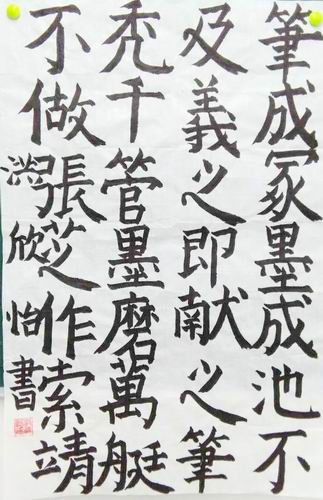 筆成冢墨成池不
及義之即献之筆
秃千管墨磨萬艇
不做張芝作索靖
洪欣怡書